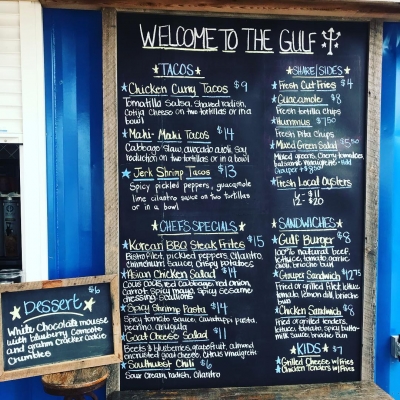 WELCOME TO THE GULF
TACOS
Chicken Curry Tacos $9
Tomatillo Salsa, Shaved radish,
Cotija Cheese on two tortillas or in a
bowl
Mahi-Mahi Tacos $14
Cabbage Slaw, avocado aioli, Soy
reduction on two tortillas or in a bowl
Jerk Shrimp Tacos $13
Spicy pickled peppers, guacamole
lime cilantro swice on two tortillas
or in a bowl
CHEF'S SPECIALS
Korean BBQ Steak Frites $15
Bistro filet, pickled peppers, Cilantro,
Chimichurri, Sauce, Crispy potatoes
Asian Chicken Salad $14
red Cabbage, red onion,
Carrot, Spicy mayo, Spicy sesame
dressing, Scallions
Spicy Shrimp Pasta $14
Spicy tomato Sauce, pasta,
pecorino, arugula
Goat Cheese Salad $11
Beets & blueberries, grapefruit, almond
encrusted goat cheese, Citrus vinaigrette
Southwest Chili $6
Sour Cream, radish, Cilantro
SHARE/SIDES
Fresh Cut Fries $4
Guacamole $8
Fresh tortilla Chips
Hummus $7.50
Fresh Pita Chips
Mixed Green Salad $5.50
Mixed greens, Cherry tomatoes,
balsamic vinaigrette - Add
Grouper + $8.50
Fresh Local Oysters
1/2 - $11
$20
SANDWICHES
Gulf Burger $8
100% natural beef,
lettuce, tomato, garlic
aioli, brioche bun
Grouper Sandwich $12.75
Fried or grilled filet, lettuce
tomato, lemon dill, brioche
bun
Chicken Sandwich $8
Fried or grilled tenders,
lettuce, tomato, spicy butter-
milk Sauce, brioche bun
KIDS $7
Grilled Cheese w/fries
Chicken Tenders w/fries
Dessert $6
White Chocolate mousse
with blueberry Compote
and graham Cracker Cookie
Crumbles